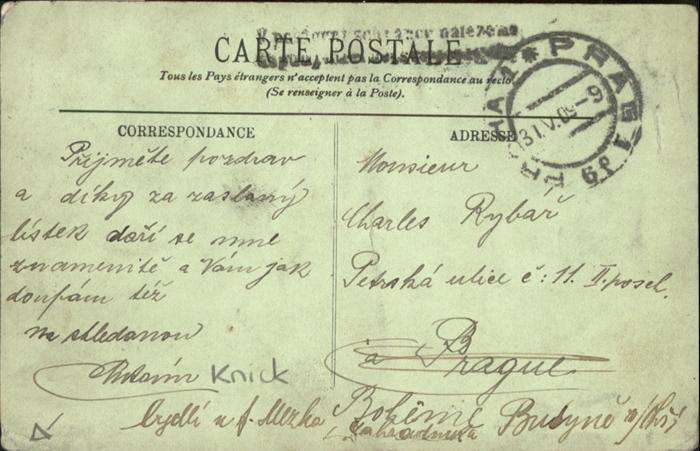 V poštovní schránce nalezeno
CARTE POSTALE
Tous les Pays étrangers n'acceptent pas la Correspondance au recto
(Se renseigner à la Poste).
PRAG 1
PRAHA
31.V.09
CORRESPONDANCE
Přijměte pozdrav
a díky za zaslaný
lístek daří se mně
znamenitě a Vám jak
doufám též
na shledanou
Knick
ADRESSE
Monsieur
Charles Rybář
Petrská ulice č: 11. II. posch.
à Prague
Bohême
bydlí u A. Mezka
zahradníka
Budyně n/Ohří